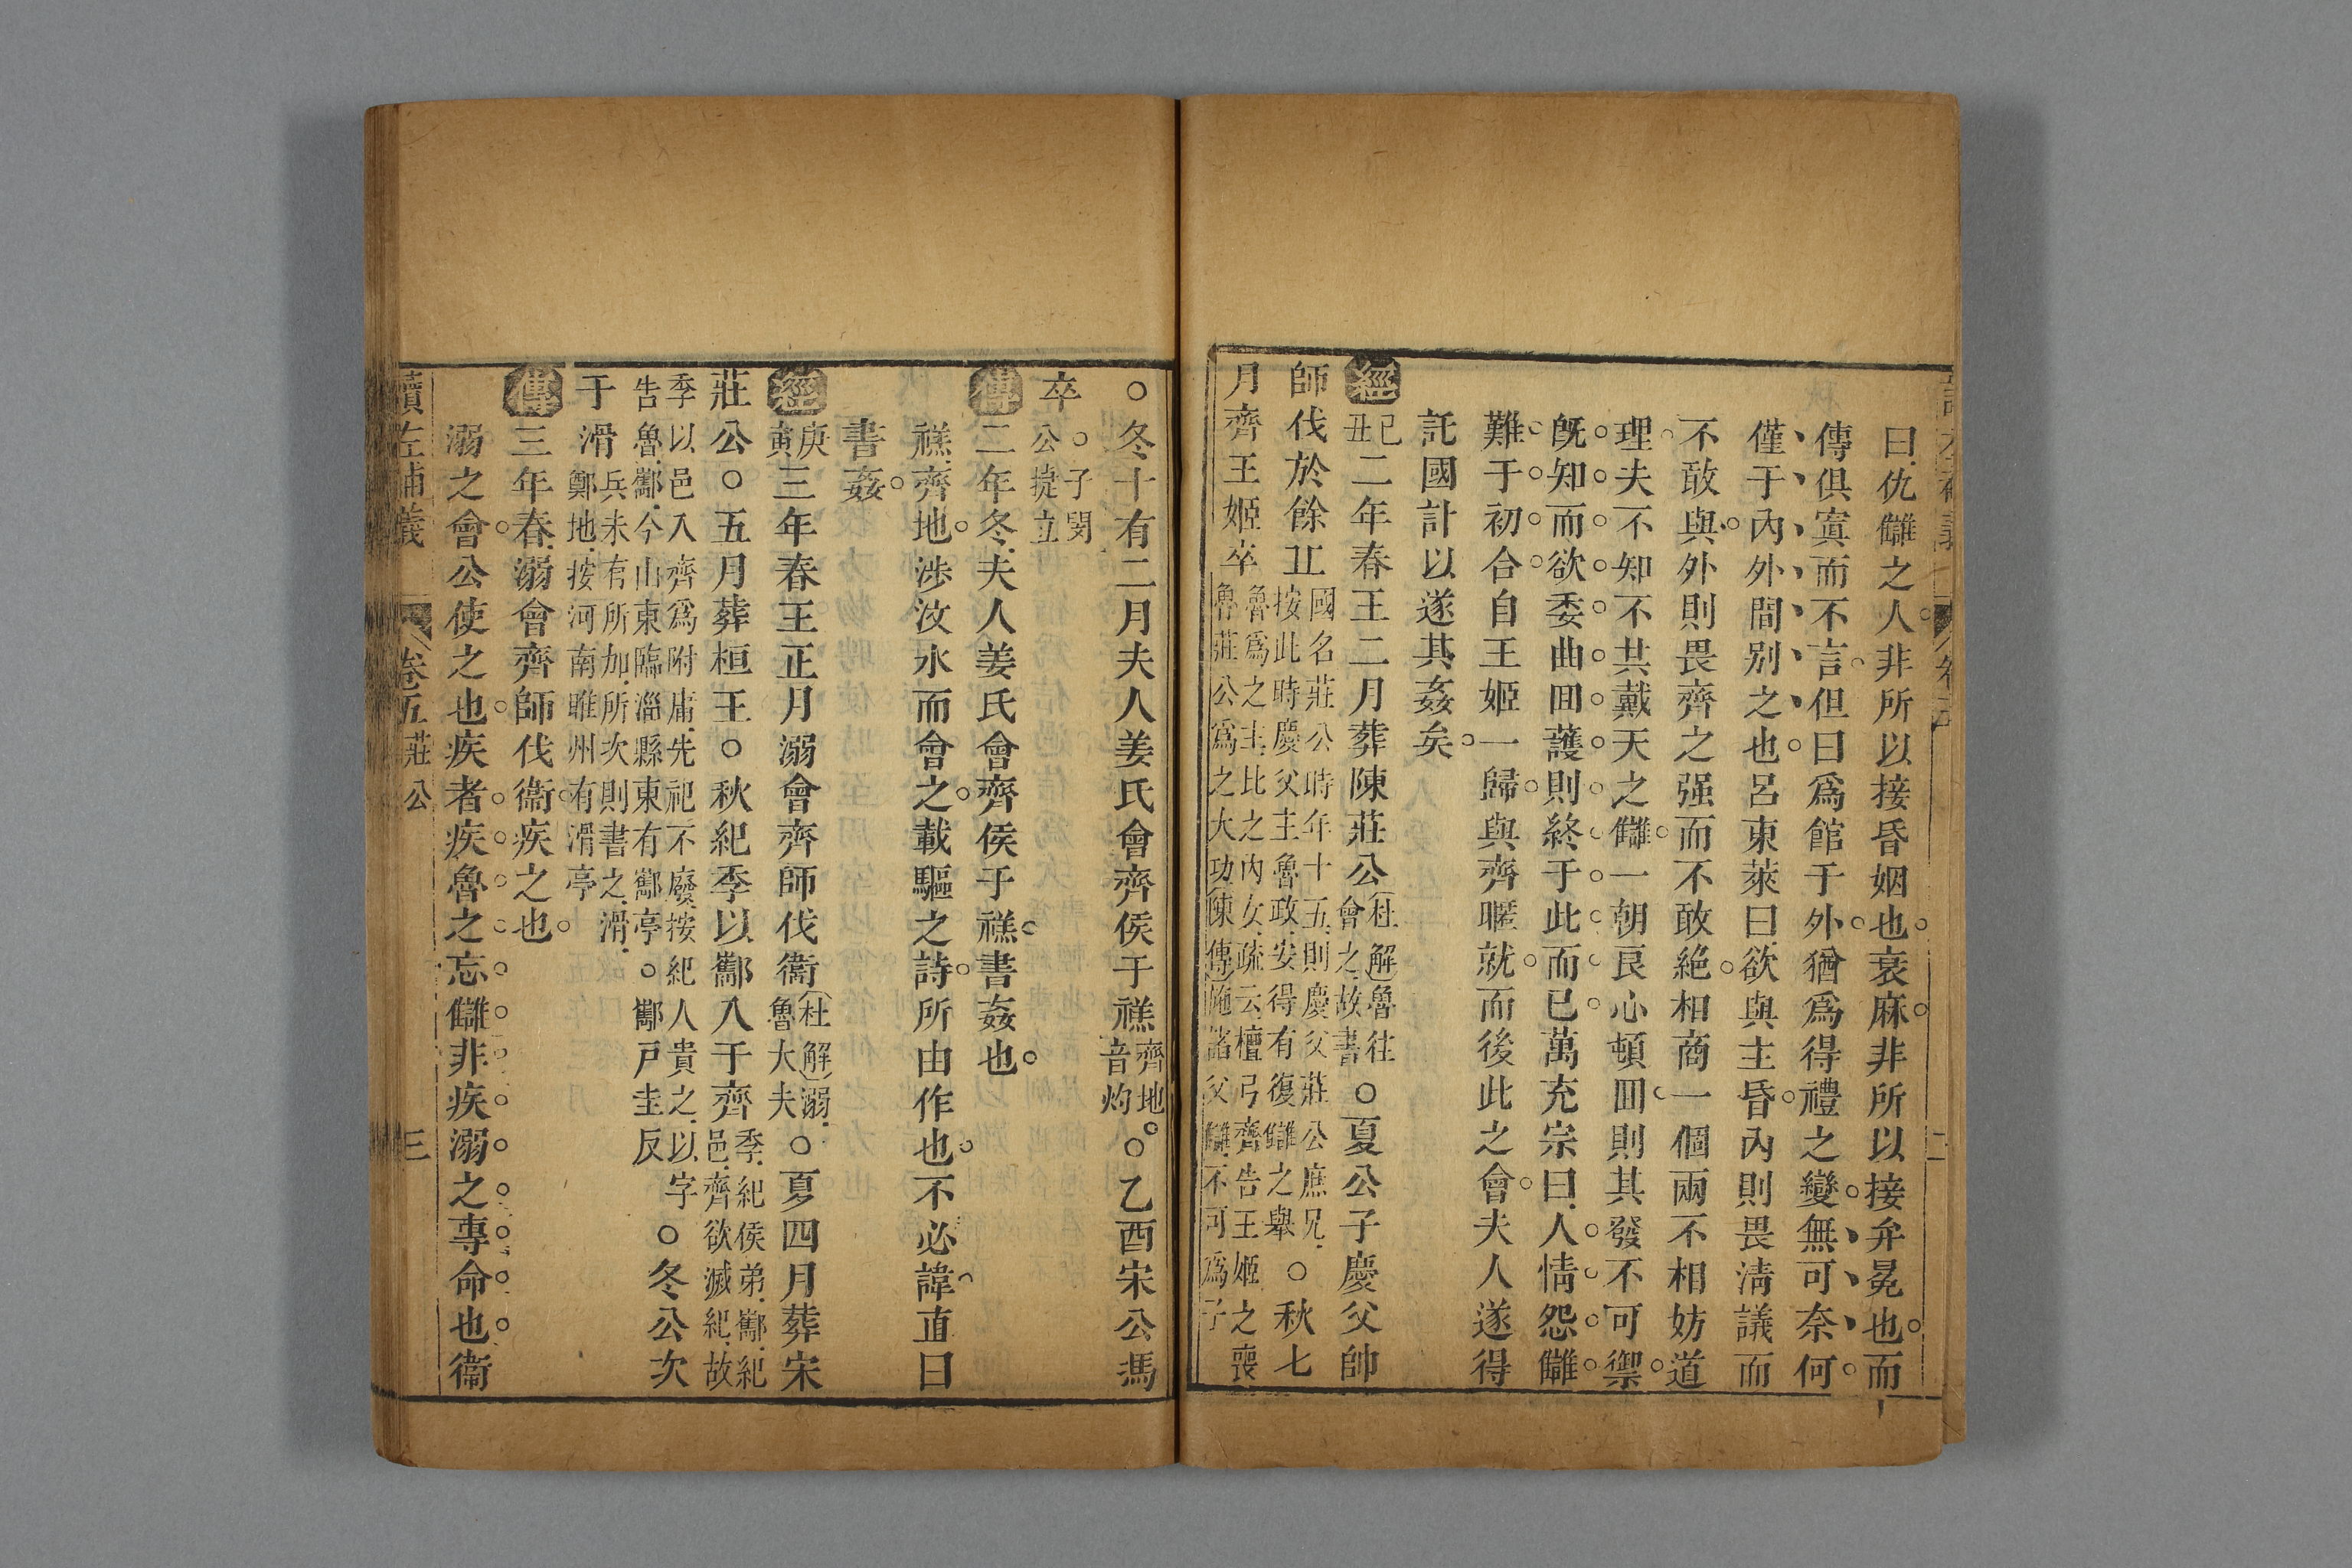 曰仇讎之人非所以接昏姻也衰麻非所以接弁冕也而
傳俱寘而不言但曰爲館于外猶爲得禮之變無可奈何
僅于內外間别之也呂東萊曰欲與主昏內則畏淸議而
不敢與外則畏齊之强而不敢絶相商一個兩不相妨道
理夫不知不共戴天之讎一朝良心頓囘則其發不可禦
旣知而欲委曲囬護則終于此而已萬充宗曰人情怨讎
難于初合自王姬一歸與齊暱就而後此之會夫人遂得
託國計以遂其姦矣
經己丑二年春王二月葬陳莊公杜解魯往會之故書○夏公子慶父帥
師伐於餘丘國名莊公時年十五則慶父莊公庶兄按此時慶父主魯政安得有復讎之舉○秋七
月齊王姬卒魯爲之主比之內女疏云檀弓齊告王姬之喪魯莊公爲之大功陳傅施諸父讎不可爲子
○冬十有二月夫人姜氏會齊侯于禚齊地音灼○乙酉宋公馮
卒○子閔公捷立
傳二年冬夫人姜氏會齊侯于禚書姦也
禚齊地涉汶水而會之載驅之詩所由作也不必諱直曰
書姦
經庚寅三年春王正月溺會齊師伐衞杜解溺魯大夫○夏四月葬宋
莊公○五月葬桓王○秋紀季以酅入于齊季紀侯弟酅紀邑齊欲滅紀故
季以邑入齊爲附庸先祀不廢按紀人貴之以字告魯酅今山東臨淄縣東有酅亭○酅戸圭反○冬公次
于滑兵未有所加所次則書之滑鄭地按河南睢州有滑亭
傳三年春溺會齊師伐衞疾之也
溺之會公使之也疾者疾魯之忘讎非疾溺之專命也衞
讀左補義 卷五 莊公 三